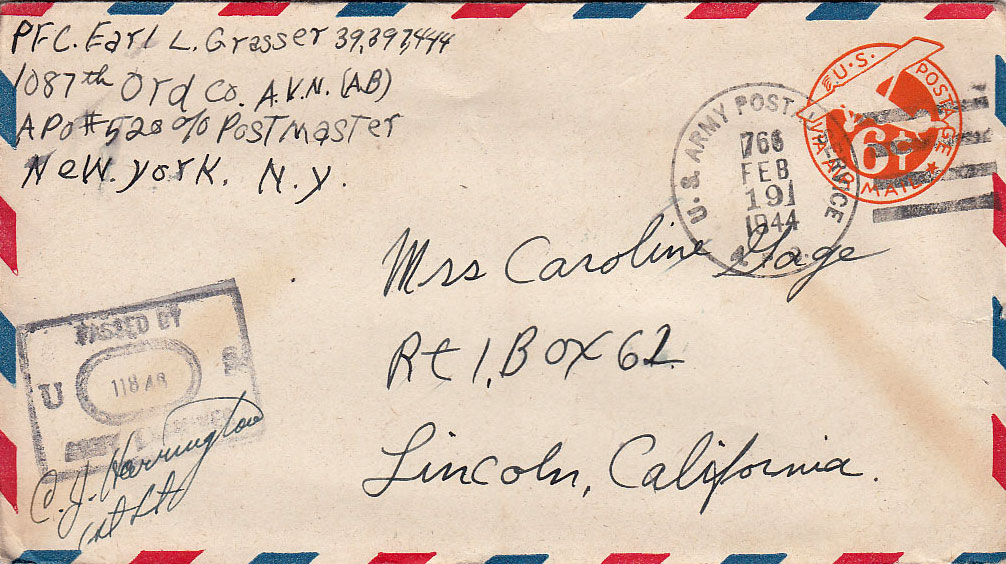 PFC. Earl L. Grasser 39,397,444
1087th Ord Co. A.V.N. (AB)
APO #520 c/o Postmaster
New. york, N.y.
U.S. POSTAGE
VIA AIR MAIL
6¢
U.S. ARMY POSTAL SERVICE
766
FEB
19
1944
Mrs Caroline Gage
Rt 1, Box 62
Lincoln, California.
PASSED BY
U S
11848
ARMY EXAMINER
C. J. Harrington
1st Lt